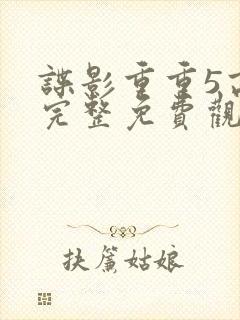 諜影重重5
完整免費觀
扶簾姑娘